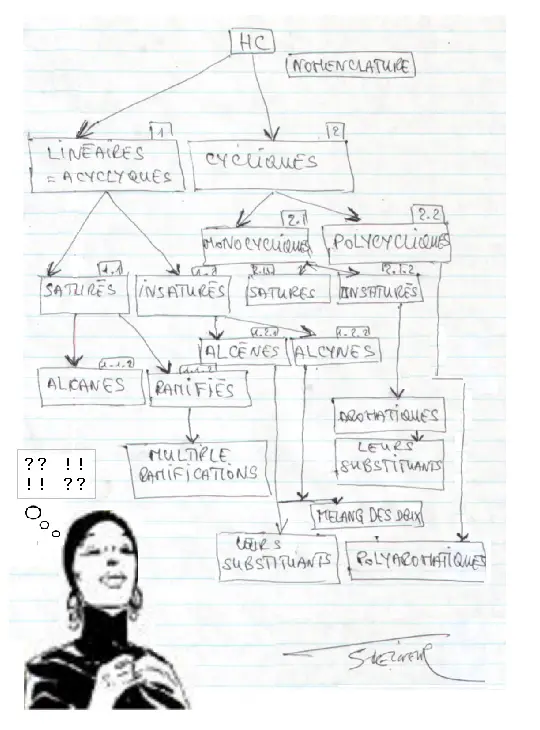 HC
NOMENCLATURE
1
LINÉAIRES
= ACYCLYQUES
2
CYCLIQUES
2.1
MONOCYCLIQUES
2.2
POLYCYCLIQUES
1.1
SATURÉS
INSATURÉS
SATURÉS
2.1.2
INSATURÉS
1.2.1
ALCÈNES
1.2.2
ALCYNES
1.1.2
ALKANES
1.1.2
RAMIFIÉS
AROMATIQUES
LEURS
SUBSTITUANTS
MULTIPLE
RAMIFICATIONS
?? !!
!! ??
MELANG DES DEUX
LEURS
SUBSTITUANTS
POLYAROMATIQUES